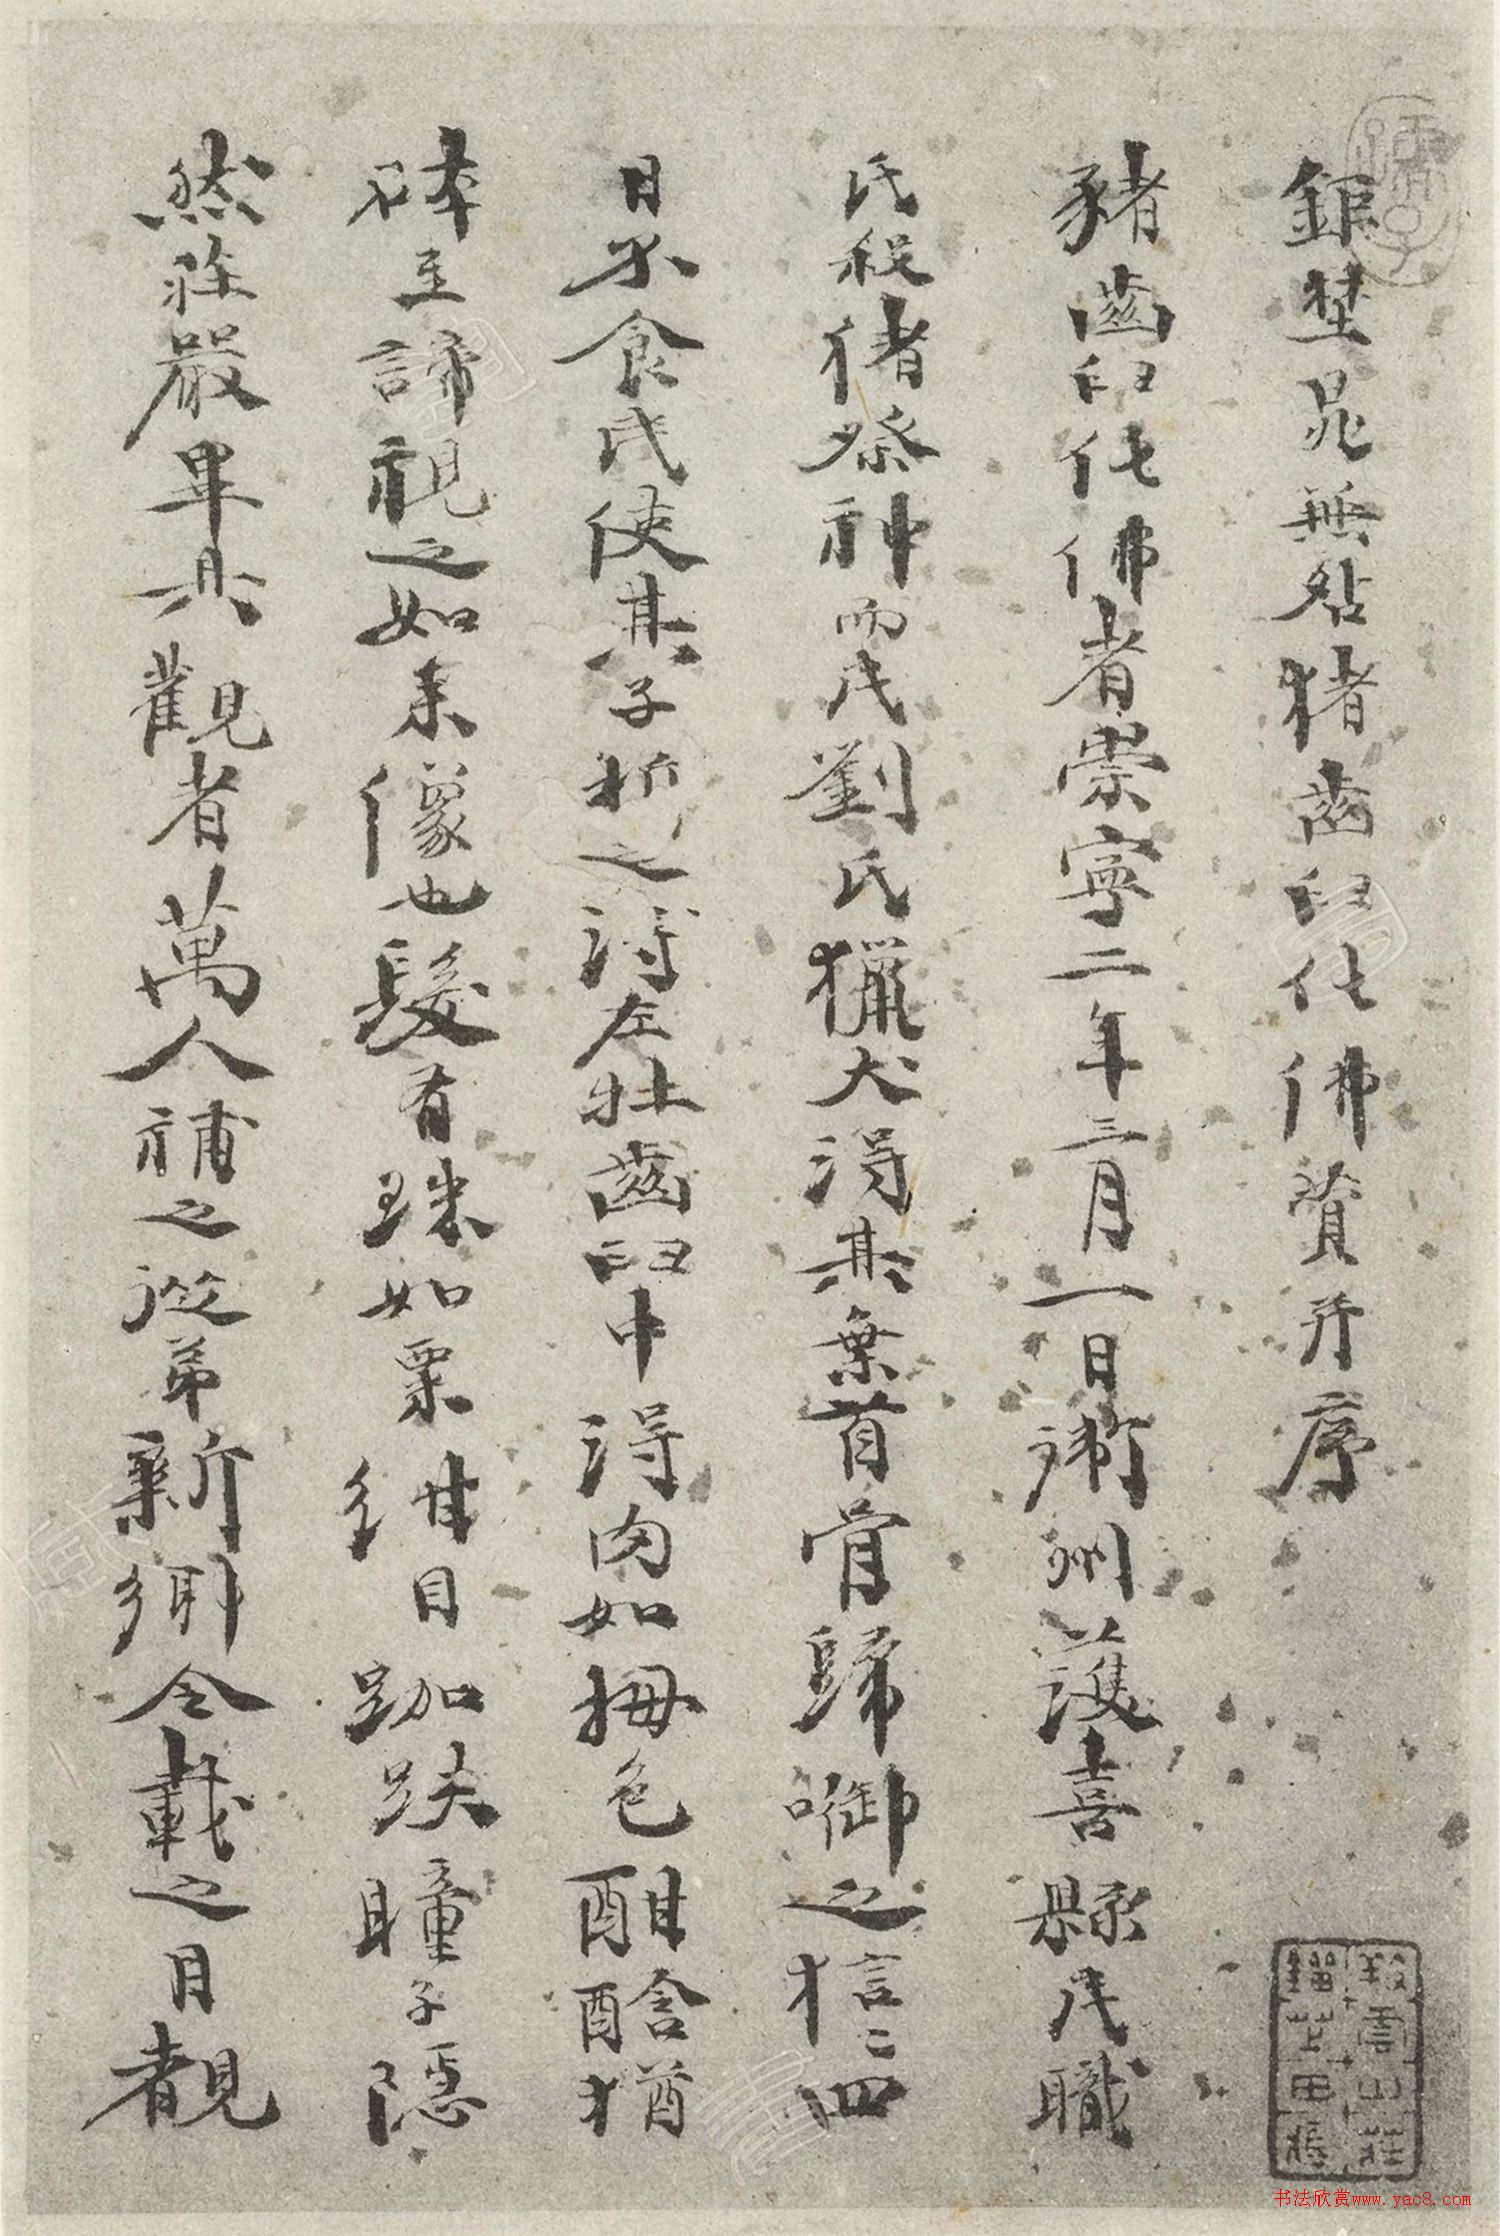 鉅埜晁無咎猪齒臼化佛贊并序
豬齒臼化佛者崇寧二年三月一日衛州護喜縣民職
氏殺猪祭神而民劉氏獵犬得其棄首骨歸啣之狺〻四
日不食民使其子析之得左牡齒臼中得肉如拇色酣猶
至諦視之如来像也髮有珠如粟紺目跏趺瞳子隱
然莊嚴畢具觀者萬人補之從弟新鄉令載之目覩
书法欣赏www.yac8.com